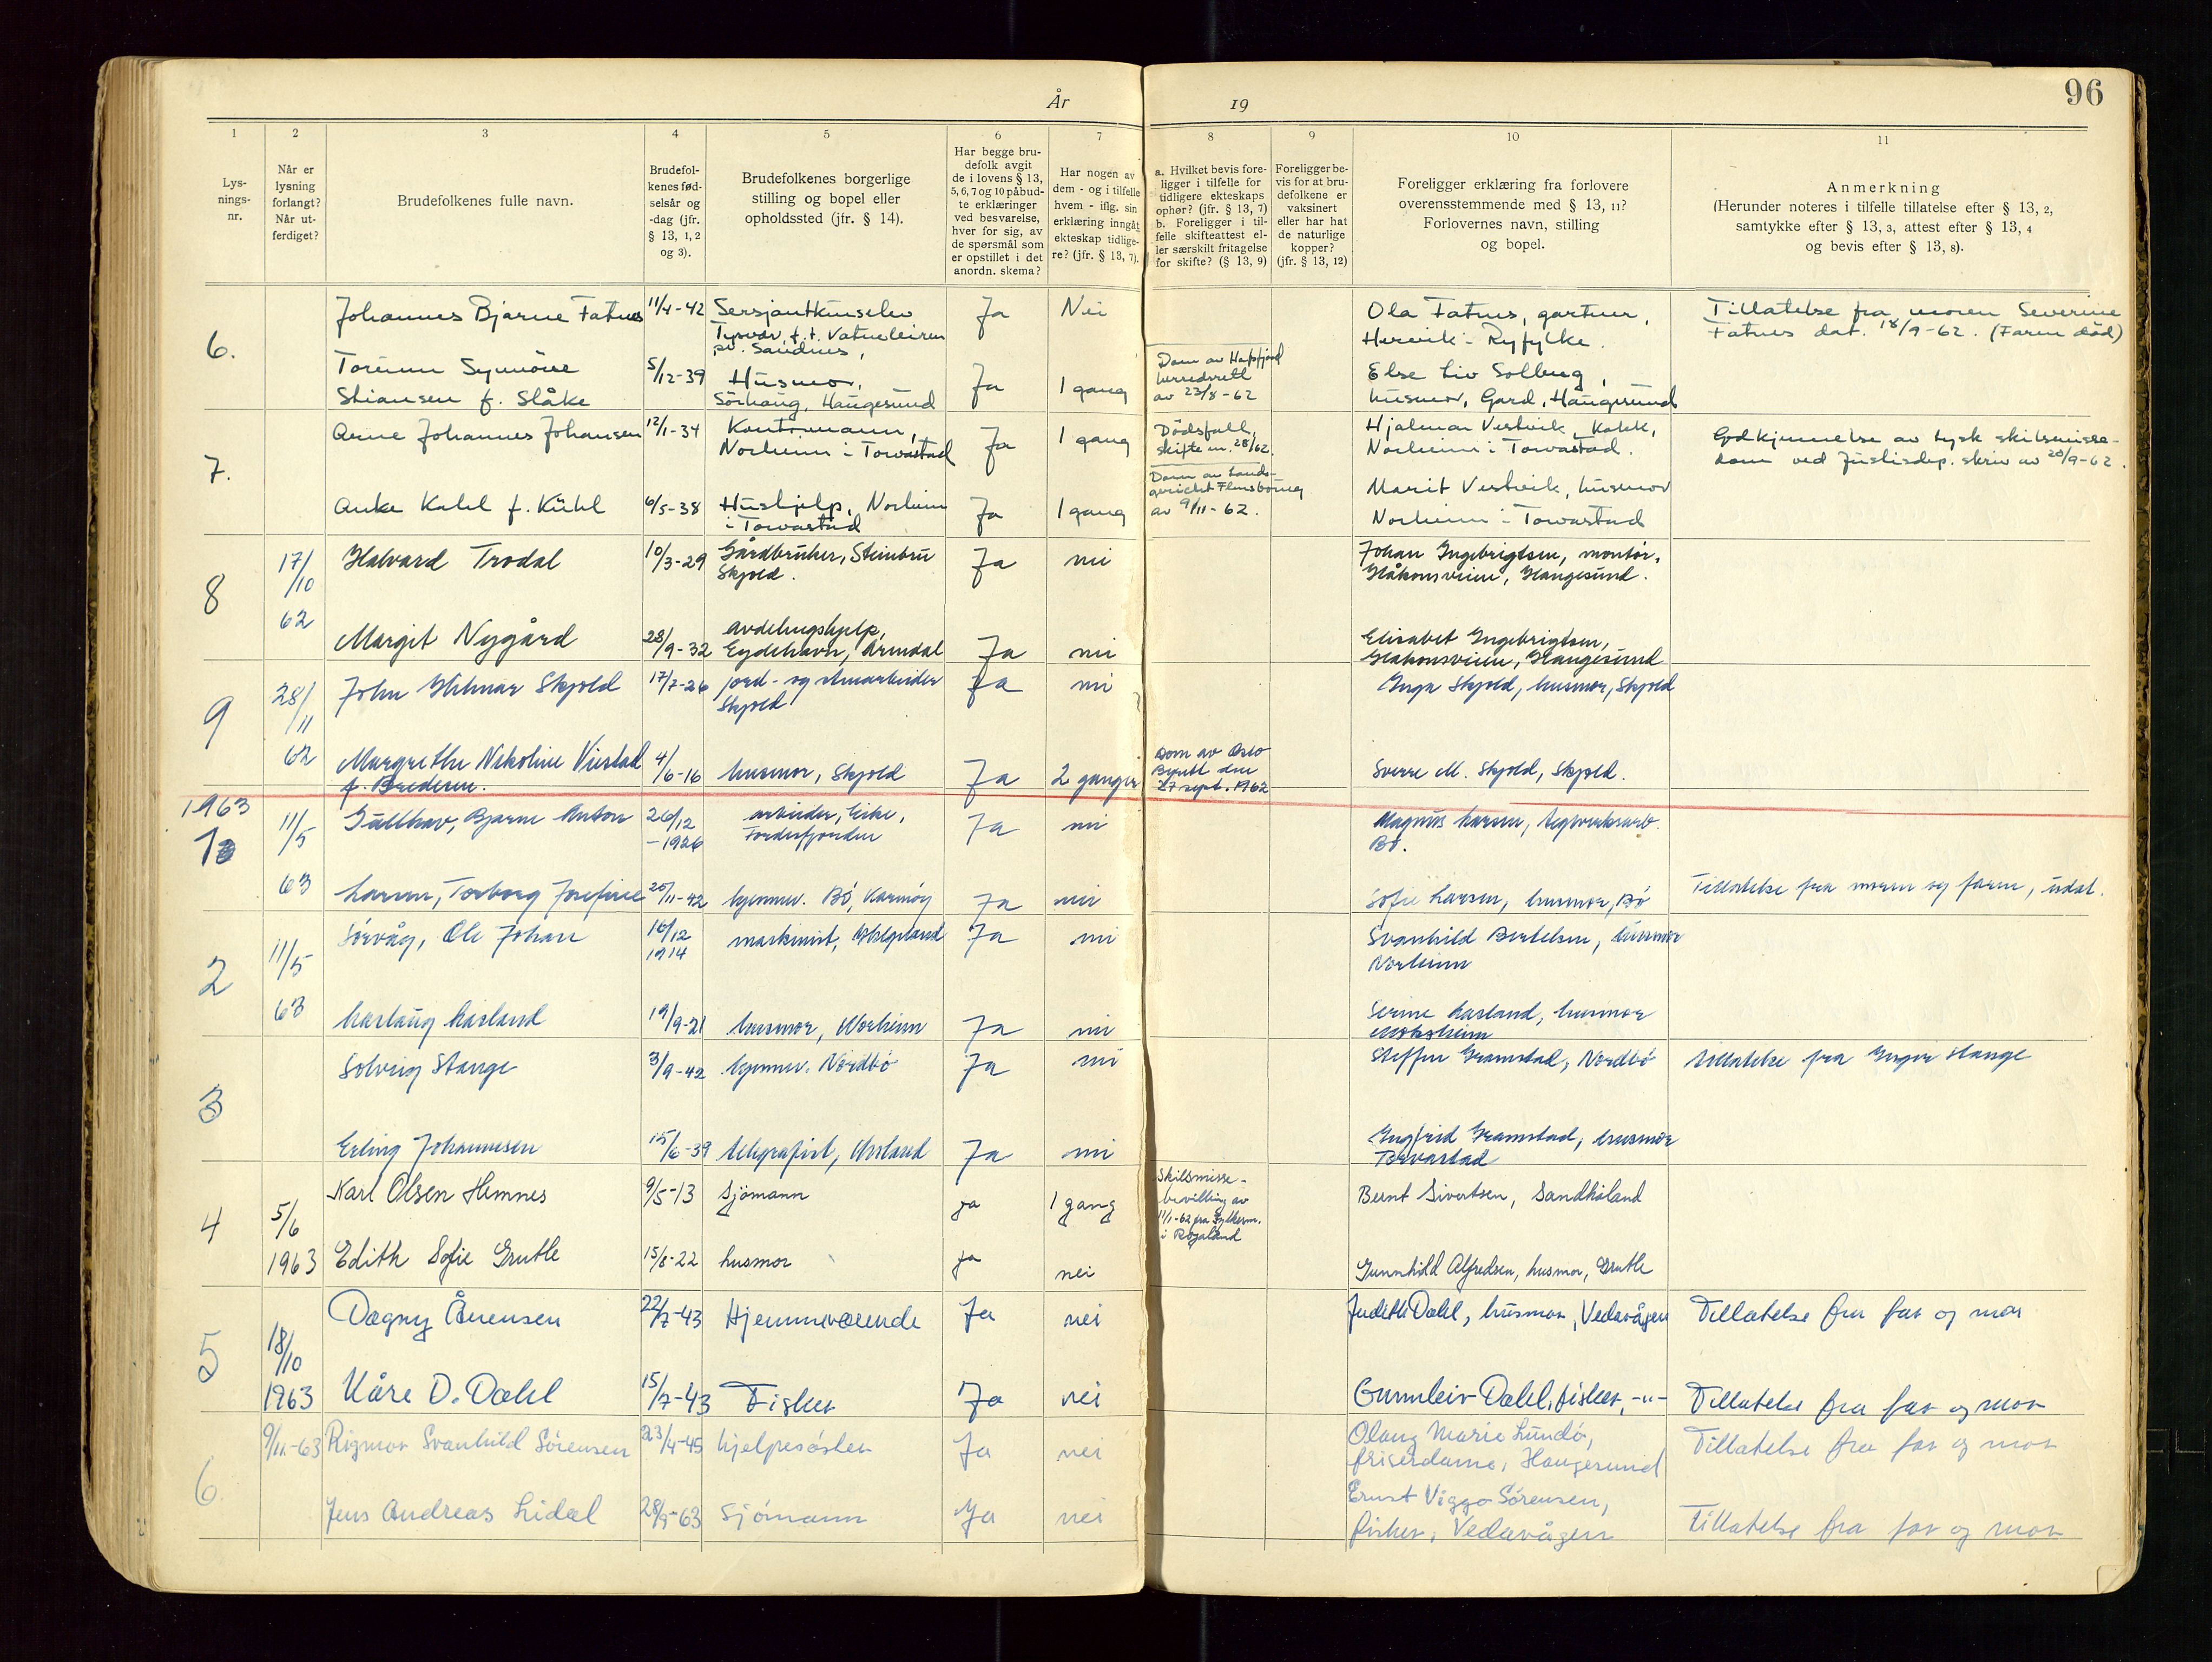 96
År 19
1 2 3 4 5 6 7 8 9 10 11
Lys-
nings-
nr.
Når er
lysning
forlangt?
Når ut-
ferdiget?
Brudefolkenes fulle navn.
Brudefol-
kenes fød-
selsår og
-dag (jfr.
§ 13, 1, 2
og 3).
Brudefolkenes borgerlige
stilling og bopel eller
opholdssted (jfr. § 14).
Har begge bru-
defolk avgit
de i lovens § 13,
5, 6, 7 og 10 påbud-
te erklæringer
ved besvarelse,
hver for sig, av
de spørsmål som
er opstillet i det
anordn. skema?
Har nogen av
dem - og i tilfelle
hvem - iflg. sin
erklæring inngåt
ekteskap tidlige-
re? (jfr. § 13, 7).
a. Hvilket bevis fore-
ligger i tilfelle for
tidligere ekteskaps
ophør? (jfr. § 13, 7)
b. Foreligger i til-
felle skifteattest el-
ler særskilt fritagelse
for skifte? (§ 13, 9)
Foreligger be-
vis for at bru-
defolkene er
vaksinert
eller har hat
de naturlige
kopper?
(jfr. § 13, 12)
Foreligger erklæring fra forlovere
overensstemmende med § 13, 11?
Forlovernes navn, stilling
og bopel.
Anmerkning
(Herunder noteres i tilfelle tillatelse efter § 13, 2,
samtykke efter § 13, 3, attest efter § 13, 4
og bevis efter § 13, 8).
6.
Johannes Bjarne Fatnes 11/4-42 Sersjantkunselev
Tysvær, f.t. Vatneleiren
pr. Sandnes,
Ja Nei
Ola Fatnes, gartner,
Hervik - Ryfylke.
Tillatelse fra moren Severine
Fatnes dat. 18/9-62. (Faren død)
Torunn Synnöve
Stiansen f. Slåke
5/12-39 Husmor,
Sörhaug, Haugesund
Ja 1 gang
Dom av Hafsfjord
herredsrett
av 23/8-62
Else Liv Solberg,
husmor, Gard, Haugesund
7.
Arne Johannes Johansen 12/1-34 Kontormann,
Norheim i Torvastad
Ja 1 gang
Dödsfall,
skifte
Hjalmar Vestvik, Kokk,
Norheim i Torvastad.
Godkjennelse av tysk skilsmisse-
dom ved Justisdep. skriv av 20/9-62.
Anke Kahl f. Kühl 6/5-38 Hushjelp, Norheim
i Torvastad
Ja 1 gang
Dom av Lands-
gericht Flensbourg
av 9/11-62.
Marit Vestvik, husmor
Norheim i Torvastad
8
17/10
62
Halvard Trodal 10/3-29 Gårdbruker, Steinbru
Skjold.
Ja nei
Johan Ingebrigtsen, montør,
Håkonsveien, Haugesund.
Margit Nygård 28/9-32 avdelingshjelp,
Eydehavn, Arendal
Ja nei
Elisabet Ingebrigtsen,
Håkonsveien, Haugesund
9
28/11
62
John Hilmar Skjold 17/7-26 jord- og stenarbeider
Skjold
Ja nei
Inga Skjold, husmor, Skjold
Margrethe Nikoline Vierstad
f. Bredesen.
4/6-16 husmor, Skjold
Ja 2 ganger
Dom av Oslo
Byrett den
27 sept. 1962
Sverre M. Skjold, Skjold.
1963
1
11/5
63
Gullhav, Bjarne Anton 26/12
-1926
arbeider, Eike,
Førdesfjorden
Ja nei
Magnus Larsen, teglverksarb.
Bø.
Larsen, Torborg Josefine 20/11-42 hjemmev. Bö, Karmöy
Ja nei
Sofie Larsen, husmor, Bö
Tillatelse fra moren og faren, udat.
2
11/5
63
Sørvåg, Ole Johan 16/12
1914
maskinist,
Ja nei
Svanhild Bertelsen, husmor
Norheim
Aaslaug Aasland 19/9-21 husmor, Norheim
Ja nei
Serine Aasland, husmor
3
Solveig Stange 3/9-42 hjemmev. Nordbö
Ja nei
Steffen Gramstad, Nordbö
tillatelse fra Inger Stange
Erling Johannesen 15/6-39 telegrafist,
Ja nei
Ingfrid Gramstad, husmor
Torvastad
4
5/6
1963
Karl Olsen Hemnes 9/5-13 Sjömann
ja 1 gang
Skilsmisse-
bevilling av
11/1-62 fra Fylkesm.
i Rogaland
Bernt Sivertsen, Sandhåland
Edith Sofie Grutle 15/8-22 husmor
ja nei
Gunnhild Alfredsen, husmor, Grutle
5
18/10
1963
Dagny Årensen 22/7-43 Hjemmeværende
Ja nei
Judith Dahl, husmor, Vedavågen
Tillatelse fra far og mor
Kåre D. Dahl 15/7-43 Fisker
Ja nei
Gunnleiv Dahl, fisker, -"-
Tillatelse fra far og mor
6.
9/11-63 Rigmor Svanhild Sörensen 23/4-45 hjelpesöster
Ja nei
Olaug Marie Lundö,
friserdame, Haugesund
Tillatelse fra far og mor
Jens Andreas Lidal 28/9-63 Sjömann
Ja nei
Ernst Viggo Sörensen,
fisker, Vedavågen
Tillatelse fra far og mor